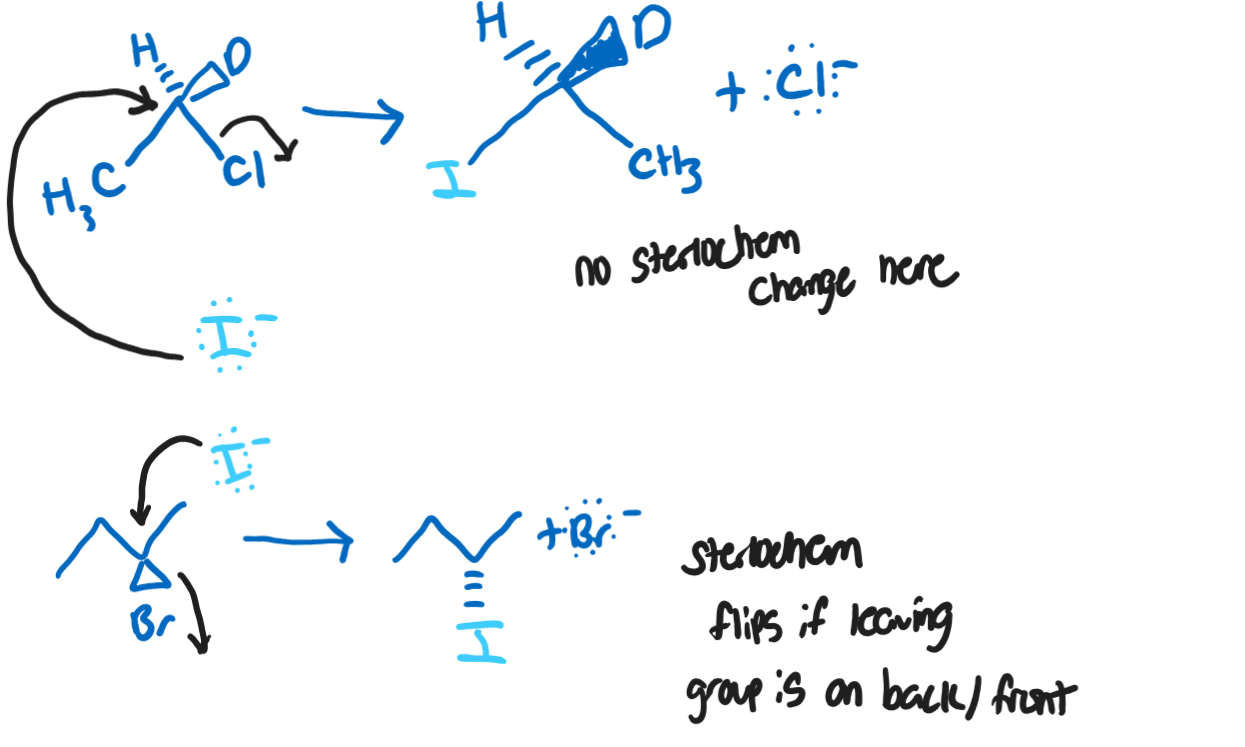 H D H D
+ :Cl:⁻
H₃C Cl I CH₃
no steriochem
change here
:I:⁻
:I:⁻
+ :Br:⁻
Br I
steriochem
flips if leaving
group is on back/front